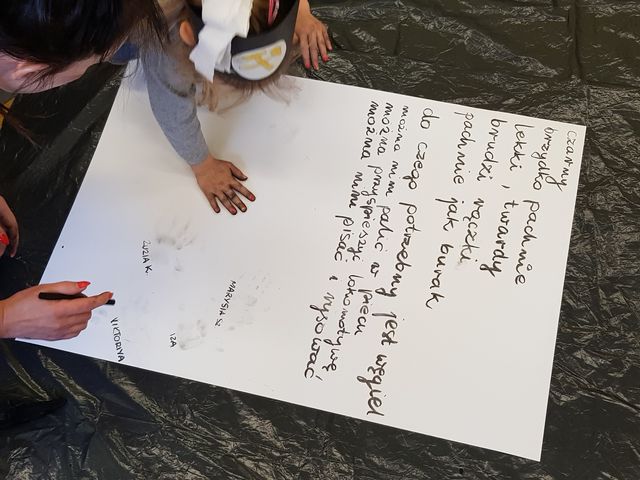 czarny
brzydko pachnie
lekki, twardy
brudzi rączki
pachnie jak burak
do czego potrzebny jest węgiel
można nim palić w piecu
można przyspieszyć lokomotywę
można nimi pisać i rysować
ZUZIA K.
MARYSIA SZ
IZA
VICTORIYA